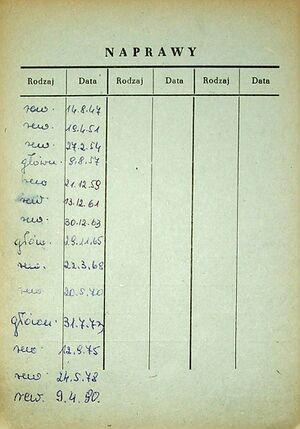 NAPRAWY
Rodzaj Data Rodzaj Data Rodzaj Data
rew. 14.8.47
rew. 19.4.51
rew. 27.2.54
główn. 9.8.57
rew 21.12.59
rew 13.12.61
rew. 30.12.63
główn. 29.11.65
rew. 22.3.68
rew 20.5.70
główn. 31.7.73
rew 12.9.75
rew 24.5.78
rew. 9.4.80.